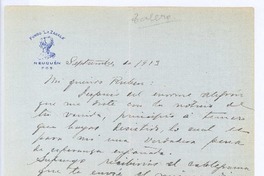 Fundo "La Zafala"
Setiembre de 1913
Mi querido Rubén:
Después del enorme alegrón
que me diste con la noticia de
tu venida, principio a temer
que hayas desistido, lo cual es
para mí una verdadera pena
de esperanza
Supongo recibirías el cablegrama
que te envié al